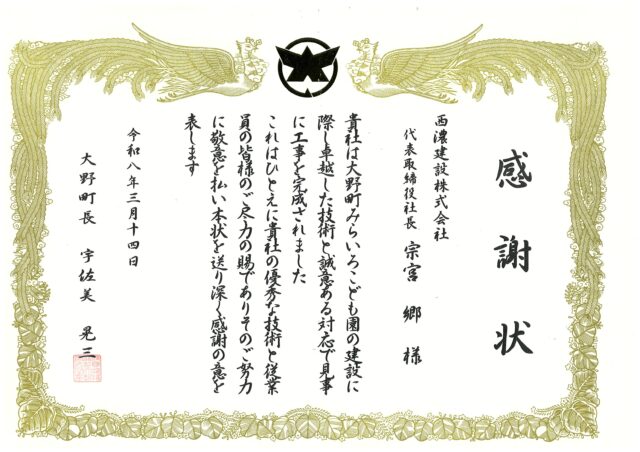 感謝状
西濃建設株式会社
代表取締役社長 宗宮 郷 様
貴社は大野町みらいろこども園の建設に
際し卓越した技術と誠意ある対応で見事
に工事を完成されました
これはひとえに貴社の優秀な技術と従業
員の皆様のご尽力の賜でありそのご努力
に敬意を払い本状を送り深く感謝の意を
表します
令和八年三月十四日
大野町長 宇佐美 晃三